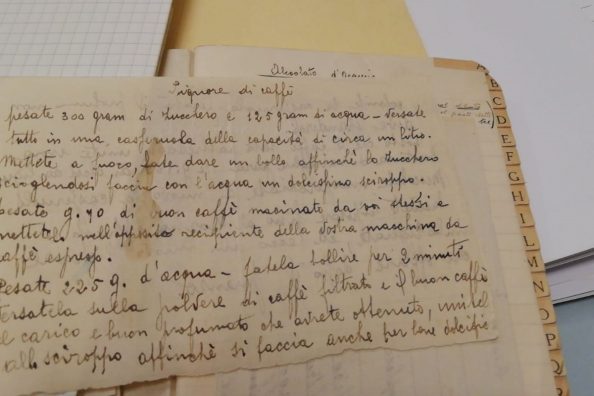 Alcolato d'Arancio
Liquore di caffè
pesate 300 gram di zucchero e 125 gram di acqua - Versate
tutto in una casseruola della capacità di circa un litro.
Mettete a fuoco, fate dare un bollo affinchè lo zucchero
sciogliendosi faccia con l'acqua un dolcissimo sciroppo.
pesate g. 70 di buon caffè macinato da voi stessi e
mettetel nell'apposito recipiente della vostra macchina da
caffè espresso.
Pesate 225 g. d'acqua - fatela bollire per 2 minuti
versatela sulla polvere di caffè filtrato e il buon caffè
carico e buon profumato che avrete ottenuto, unitel
allo sciroppo affinchè si faccia anche per bene
A
B
C
D
E
F
G
H
I
L
M
N
O
P
Q